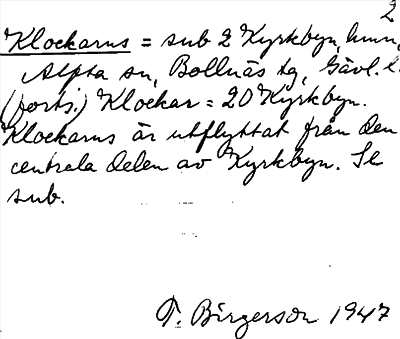 2
Klockarns = sub 2 Kyrkbyn, hmn,
Alfta sn, Bollnäs tg, Gävl. l.
(forts.) Klockar = 20 Kyrkbyn.
Klockarns är utflyttat från den
centrala delen av Kyrkbyn. Se
sub.
T. Birgerson 1947